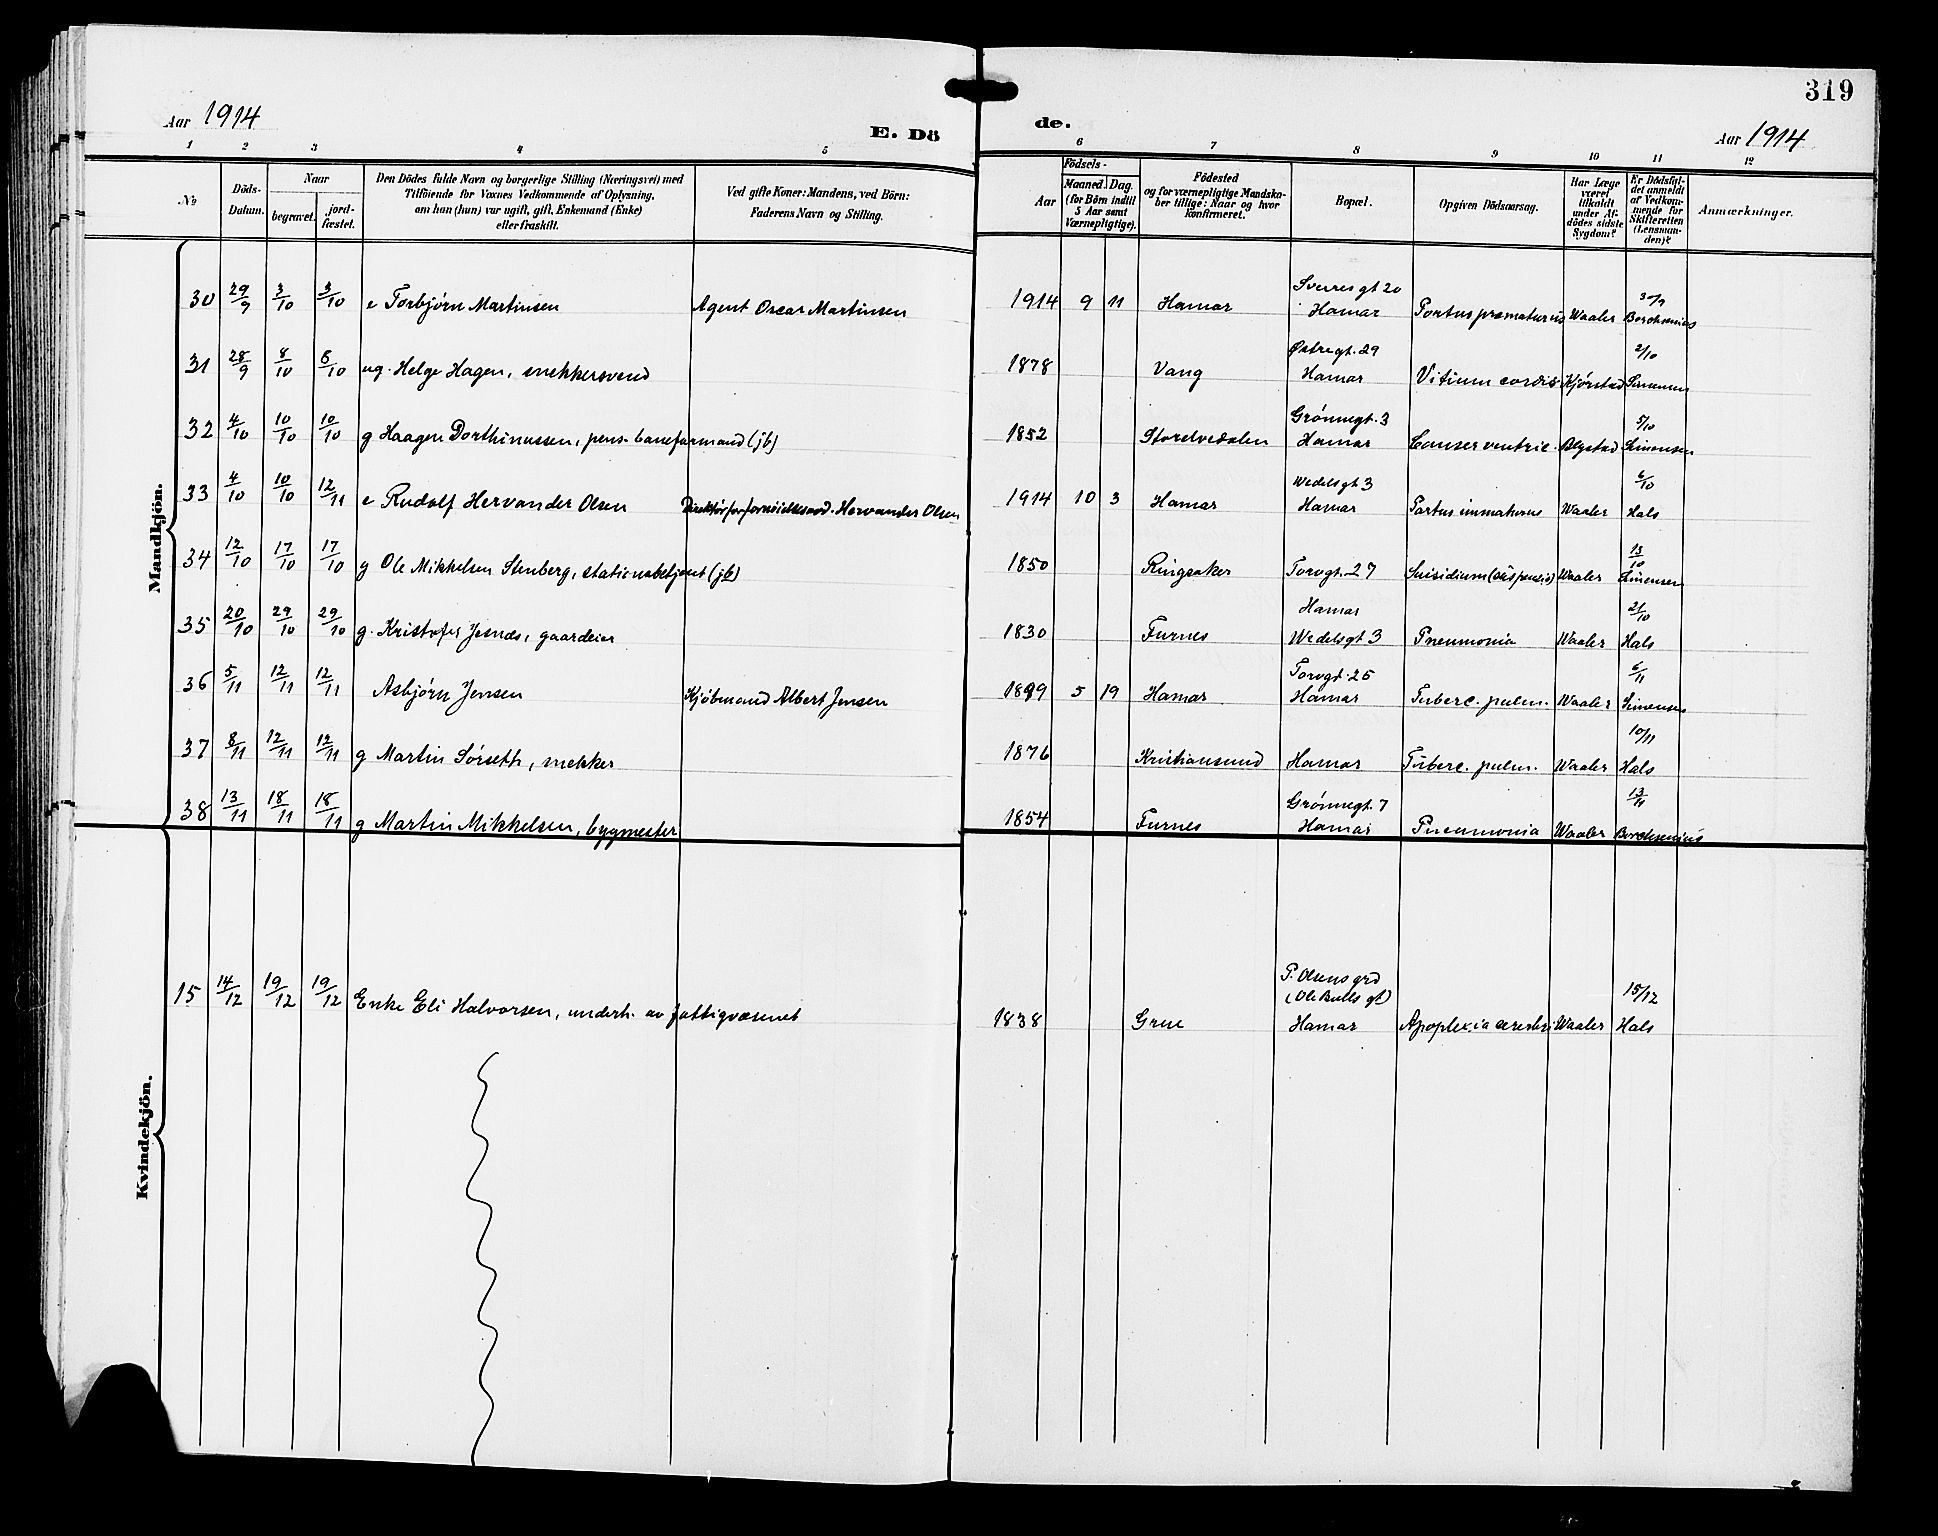 319
Aar 1914
E. Dö
de.
Aar 1914
1 2 3 4 5 6 7 8 9 10 11 12
No
Döds-
Datum.
Naar
begravet.
jord-
fæstet.
Den Dödes fulde Navn og borgerlige Stilling (Næringsvei) med
Tilföiende for Voxnes Vedkommende af Oplysning,
om han (hun) var ugift, gift, Enkemand (Enke)
eller fraskilt.
Ved gifte Koner: Mandens, ved Börn:
Faderens Navn og Stilling.
Födsels-
Aar
Maaned. Dag.
(for Börn indtil
5 Aar samt
Værnepligtige).
Födested
og for værnepligtige Mandska-
ber tillige: Naar og hvor
konfirmeret.
Bopæl.
Opgiven Dödsaarsag.
Har Læge
været
tilkaldt
under Af-
dödes sidste
Sygdom?
Er Dödsfal-
det anmeldt
af Vedkom-
mende for
Skifteretten
(Lensman-
den)?
Anmærkninger.
Mandkjön.
30 29/9 3/10 3/10 e Torbjørn Martinsen Agent Oscar Martinsen 1914 9 11 Hamar Sverresgt 20 Hamar Partus præmaturus Waaler 30/9 Borchsenius
31 28/9 8/10 8/10 ug. Helge Hagen, snekkersvend 1878 Vang Østregt. 29 Hamar Vitium cordis Kjørstad 2/10 Simensen
32 4/10 10/10 10/10 g Haagen Dorthinussen, pens. baneformand (jb) 1852 Storelvedalen Grønnegt. 3 Hamar Cancer ventric. Blystad 5/10 Simensen
33 4/10 10/10 12/11 e Rudolf Hervander Olsen Hervander Olsen 1914 10 3 Hamar Wedelsgt 3 Hamar Partus immaturus Waaler 6/10 Hals
34 12/10 17/10 17/10 g Ole Mikkelsen Stenberg, stationsbetjent (jb) 1850 Ringsaker Torvgt. 27 Suisidium (suspensis) Waaler 13/10 Simensen
35 20/10 29/10 29/10 g. Kristofer Jesnes, gaardeier 1830 Furnes Hamar Wedelsgt 3 Pneumonia Waaler 21/10 Hals
36 5/11 12/11 12/11 Asbjørn Jensen Kjøbmand Albert Jensen 1899 5 19 Hamar Torvgt. 25 Hamar Tuberc. pulm. Waaler 6/11 Simensen
37 8/11 12/11 12/11 g Martin Sørseth, snekker 1876 Kristiansund Hamar Tuberc. pulm. Waaler 10/11 Hals
38 13/11 18/11 18/11 g Martin Mikkelsen, bygmester 1854 Furnes Grønnegt. 7 Hamar Pneumonia Waaler 13/11 Borchsenius
Kvindekjön.
15 14/12 19/12 19/12 Enke Eli Halvorsen, underh. av fattigvæsenet 1838 Grue P. Olsens grd (Ole Bulls gt) Hamar Apoplexia cerebri Waaler 15/12 Hals